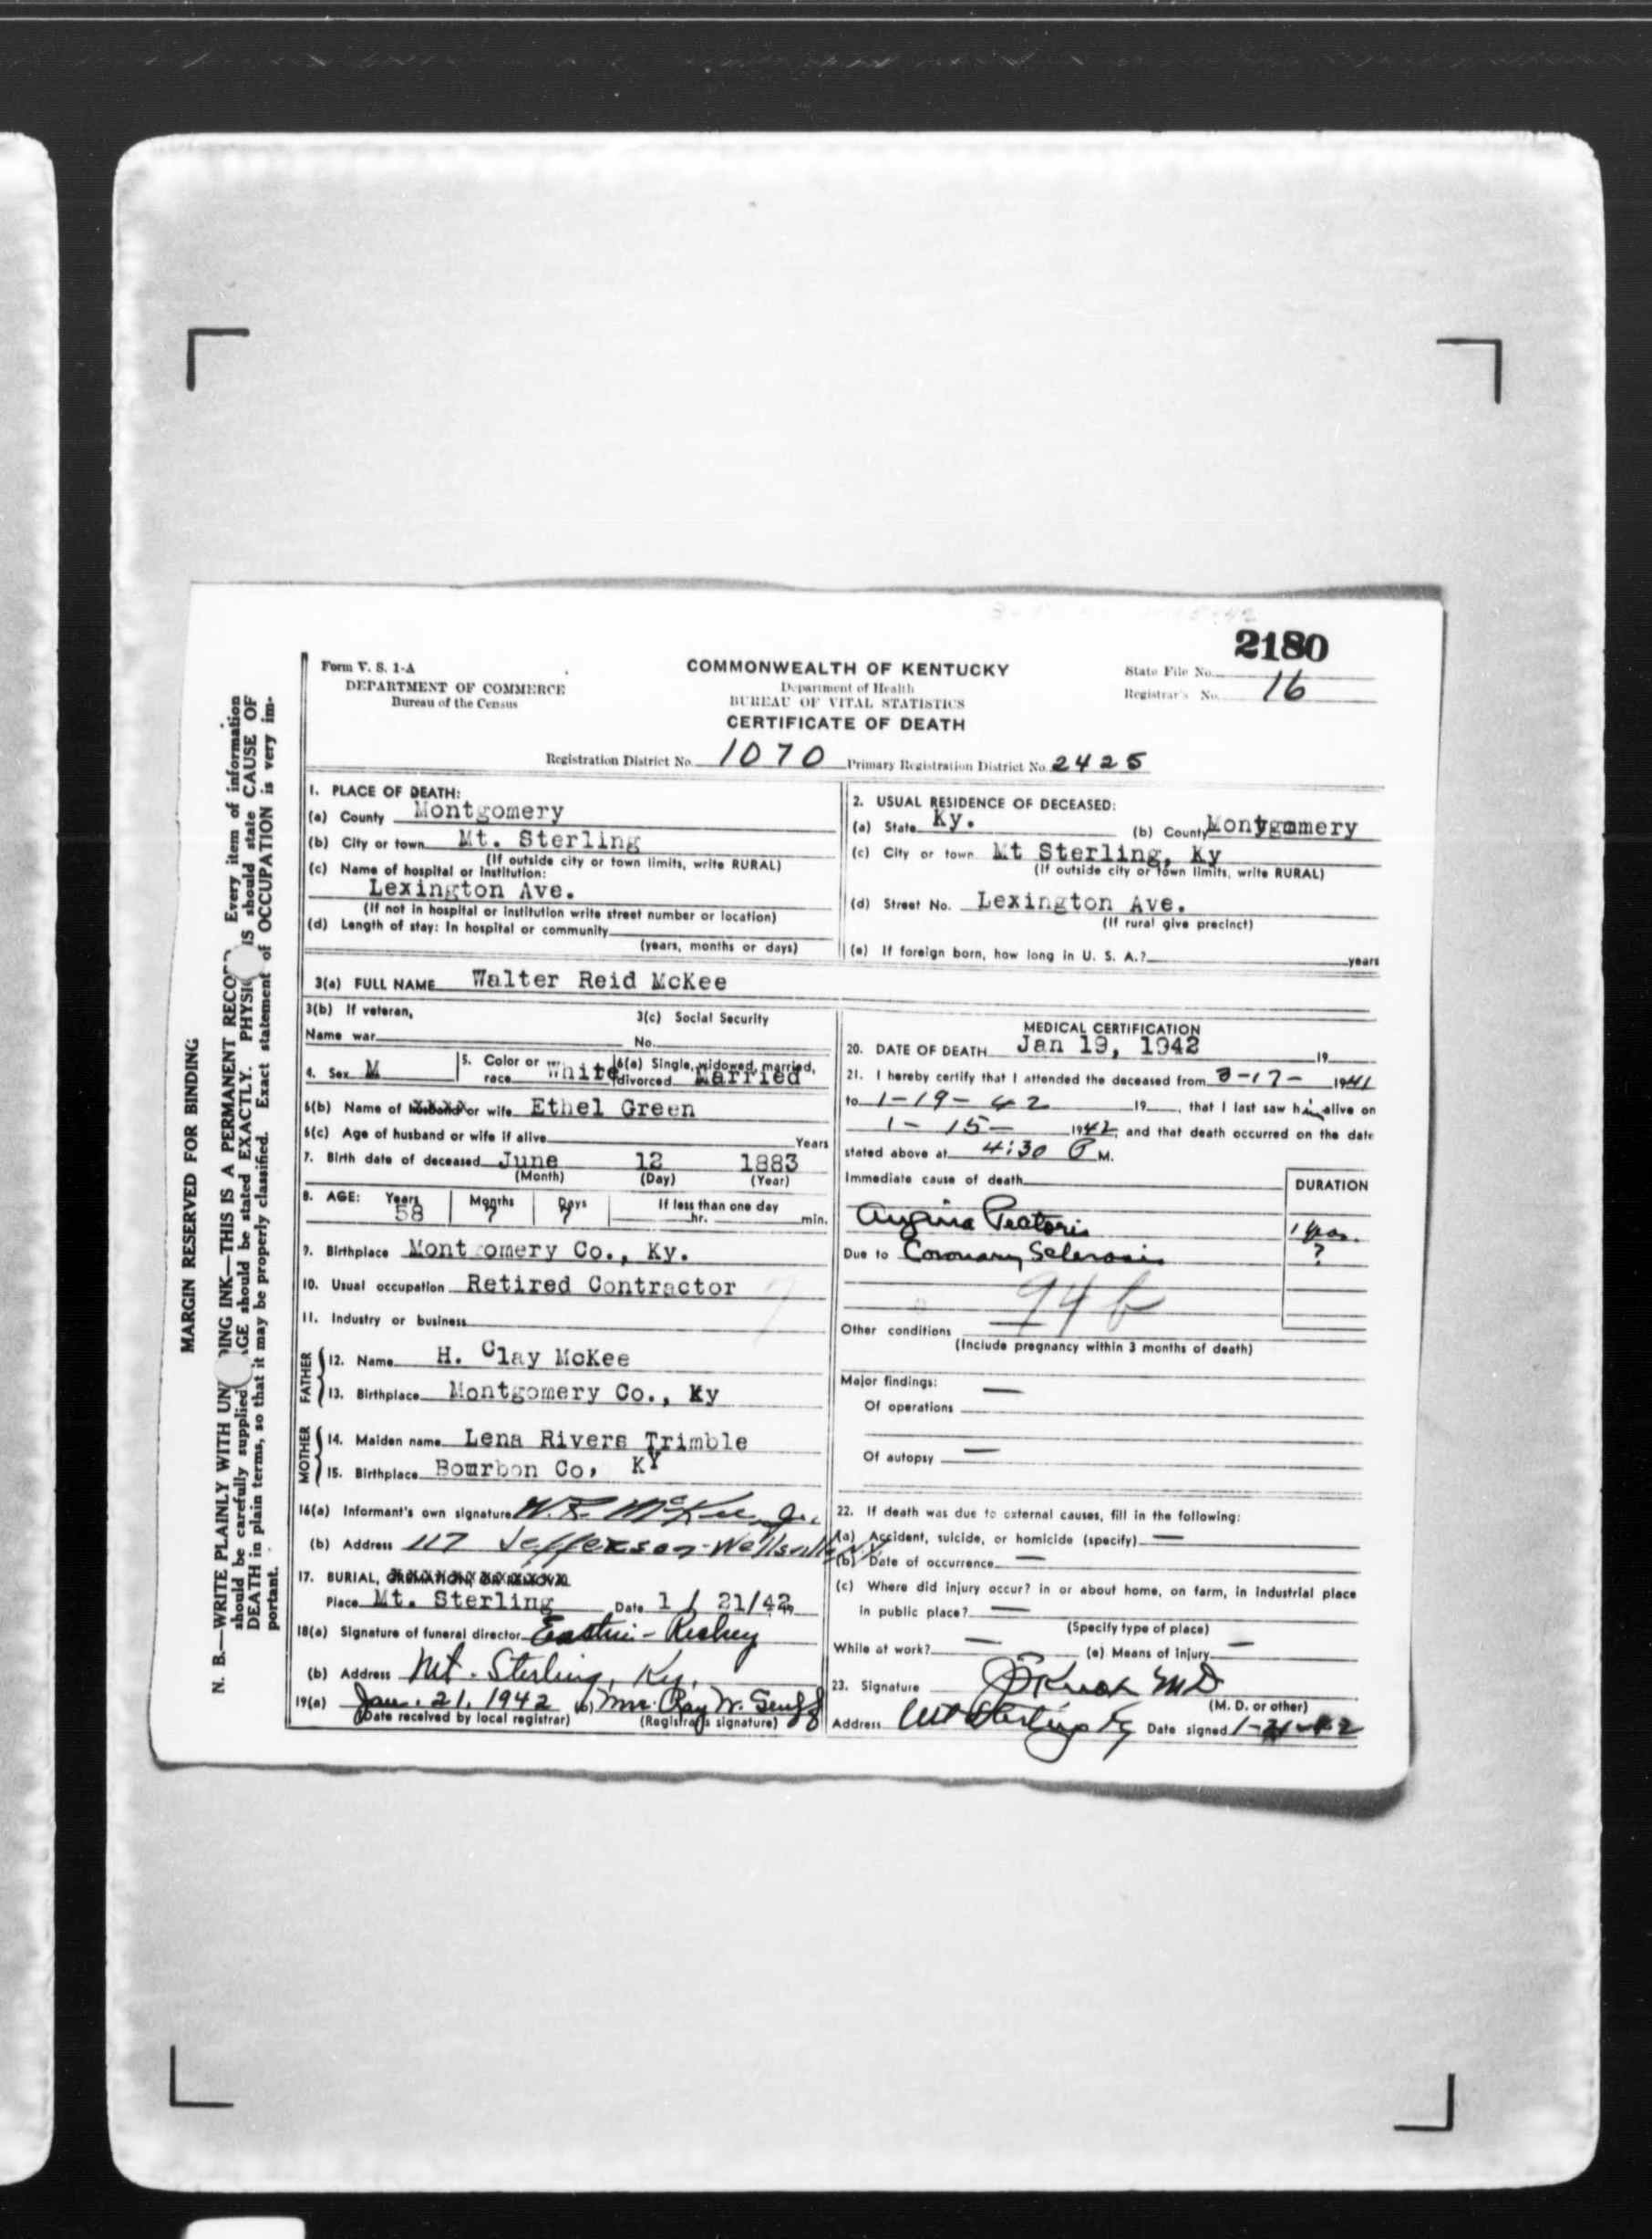 2180
Form V. S. 1-A
DEPARTMENT OF COMMERCE
Bureau of the Census
COMMONWEALTH OF KENTUCKY
Department of Health
BUREAU OF VITAL STATISTICS
CERTIFICATE OF DEATH
State File No.
Registrar's No. 16
Registration District No. 1070 Primary Registration District No. 2425
MARGIN RESERVED FOR BINDING
N. B.—WRITE PLAINLY WITH UN DING INK—THIS IS A PERMANENT RECO Every item of information
should be carefully supplied AGE should be stated EXACTLY. PHYSI IS should state CAUSE OF
DEATH in plain terms, so that it may be properly classified. Exact statement of OCCUPATION is very im-
portant.
1. PLACE OF DEATH:
(a) County Montgomery
(b) City or town Mt. Sterling
(If outside city or town limits, write RURAL)
(c) Name of hospital or institution:
Lexington Ave.
(If not in hospital or institution write street number or location)
(d) Length of stay: In hospital or community
(years, months or days)
2. USUAL RESIDENCE OF DECEASED:
(a) State Ky. (b) County Montgomery
(c) City or town Mt Sterling, Ky
(If outside city or town limits, write RURAL)
(d) Street No. Lexington Ave.
(If rural give precinct)
(e) If foreign born, how long in U. S. A.? years
3(a) FULL NAME Walter Reid McKee
3(b) If veteran,
Name war
3(c) Social Security
No.
4. Sex M
5. Color or race White
6(a) Single, widowed, married, divorced Married
6(b) Name of husband or wife Ethel Green
6(c) Age of husband or wife if alive Years
7. Birth date of deceased June 12 1883
(Month) (Day) (Year)
8. AGE: Years Months Days If less than one day
58 7 7 hr. min.
9. Birthplace Mont omery Co., Ky.
10. Usual occupation Retired Contractor
11. Industry or business
FATHER
12. Name H. Clay McKee
13. Birthplace Montgomery Co., Ky
MOTHER
14. Maiden name Lena Rivers Trimble
15. Birthplace Bourbon Co, KY
16(a) Informant's own signature W. R. McKee, Jr.
(b) Address 117 Jefferson - Wellsville N.Y.
17. BURIAL, CREMATION, OR REMOVAL
Place Mt. Sterling Date 1 / 21/42
18(a) Signature of funeral director Eastin - Richey
(b) Address Mt. Sterling, Ky.
19(a) Jan. 21, 1942 (b) Mrs. Ray W. Senff
(Date received by local registrar) (Registrar's signature)
MEDICAL CERTIFICATION
20. DATE OF DEATH Jan 19, 1942 19
21. I hereby certify that I attended the deceased from 3-17- 1941
to 1-19-42 19 , that I last saw him alive on
1-15- 1942, and that death occurred on the date
stated above at 4:30 P M.
Immediate cause of death DURATION
Angina Pectoris 1 year.
Due to Coronary Sclerosis ?
94 b
Other conditions —
(Include pregnancy within 3 months of death)
Major findings: —
Of operations
Of autopsy —
22. If death was due to external causes, fill in the following:
(a) Accident, suicide, or homicide (specify) —
(b) Date of occurrence —
(c) Where did injury occur? in or about home, on farm, in industrial place
in public place? —
(Specify type of place)
While at work? — (e) Means of injury —
23. Signature M D
(M. D. or other)
Address Mt Sterling Ky Date signed 1-21-42